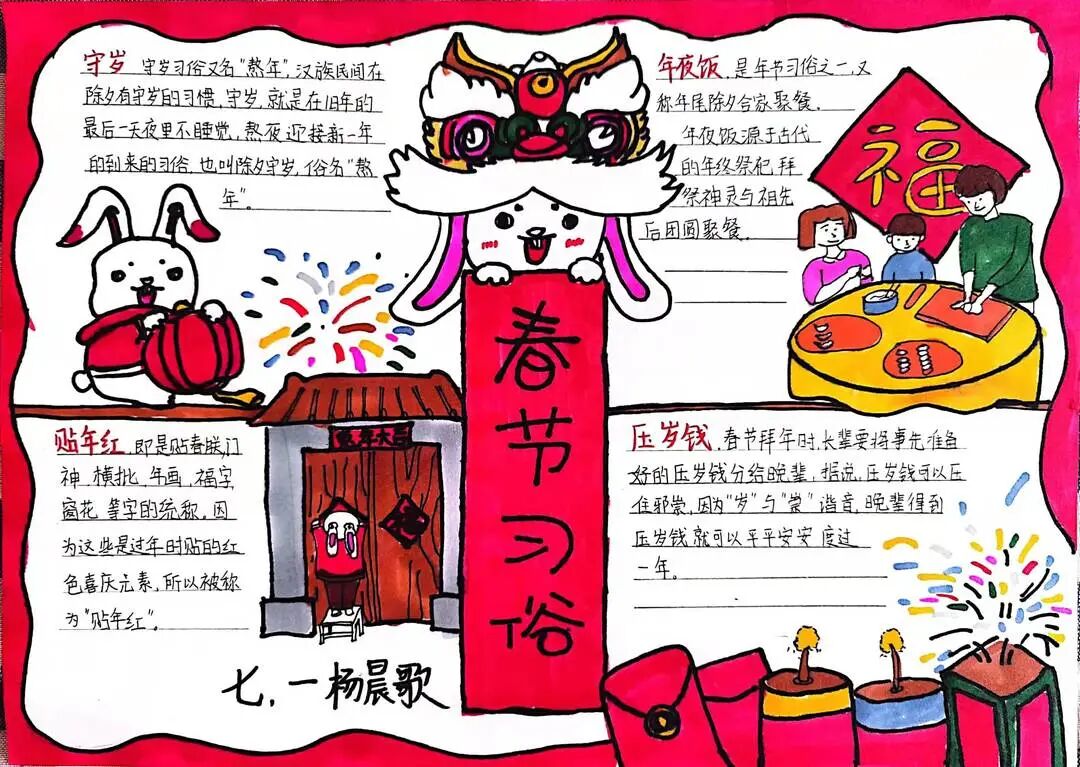 守岁 守岁习俗又名"熬年",汉族民间在
除夕有守岁的习惯,守岁,就是在旧年的
最后一天夜里不睡觉,熬夜迎接新一年
的到来的习俗,也叫除夕守岁,俗名"熬
年"。
年夜饭,是年节习俗之一,又
称年尾除夕合家聚餐.
年夜饭源于古代
的年终祭祀,拜
祭神灵与祖先
后团圆聚餐.
福
春节习俗
贴年红,即是贴春联,门
神,横批,年画,福字,
窗花,等字的统称,因
为这些是过年时贴的红
色喜庆元素,所以被称
为"贴年红"。
兔年大吉
福
压岁钱,春节拜年时,长辈要将事先准备
好的压岁钱分给晚辈,据说,压岁钱可以压
住邪祟,因为"岁"与"祟"谐音,晚辈得到
压岁钱就可以平平安安度过
一年。
七.一杨晨歌